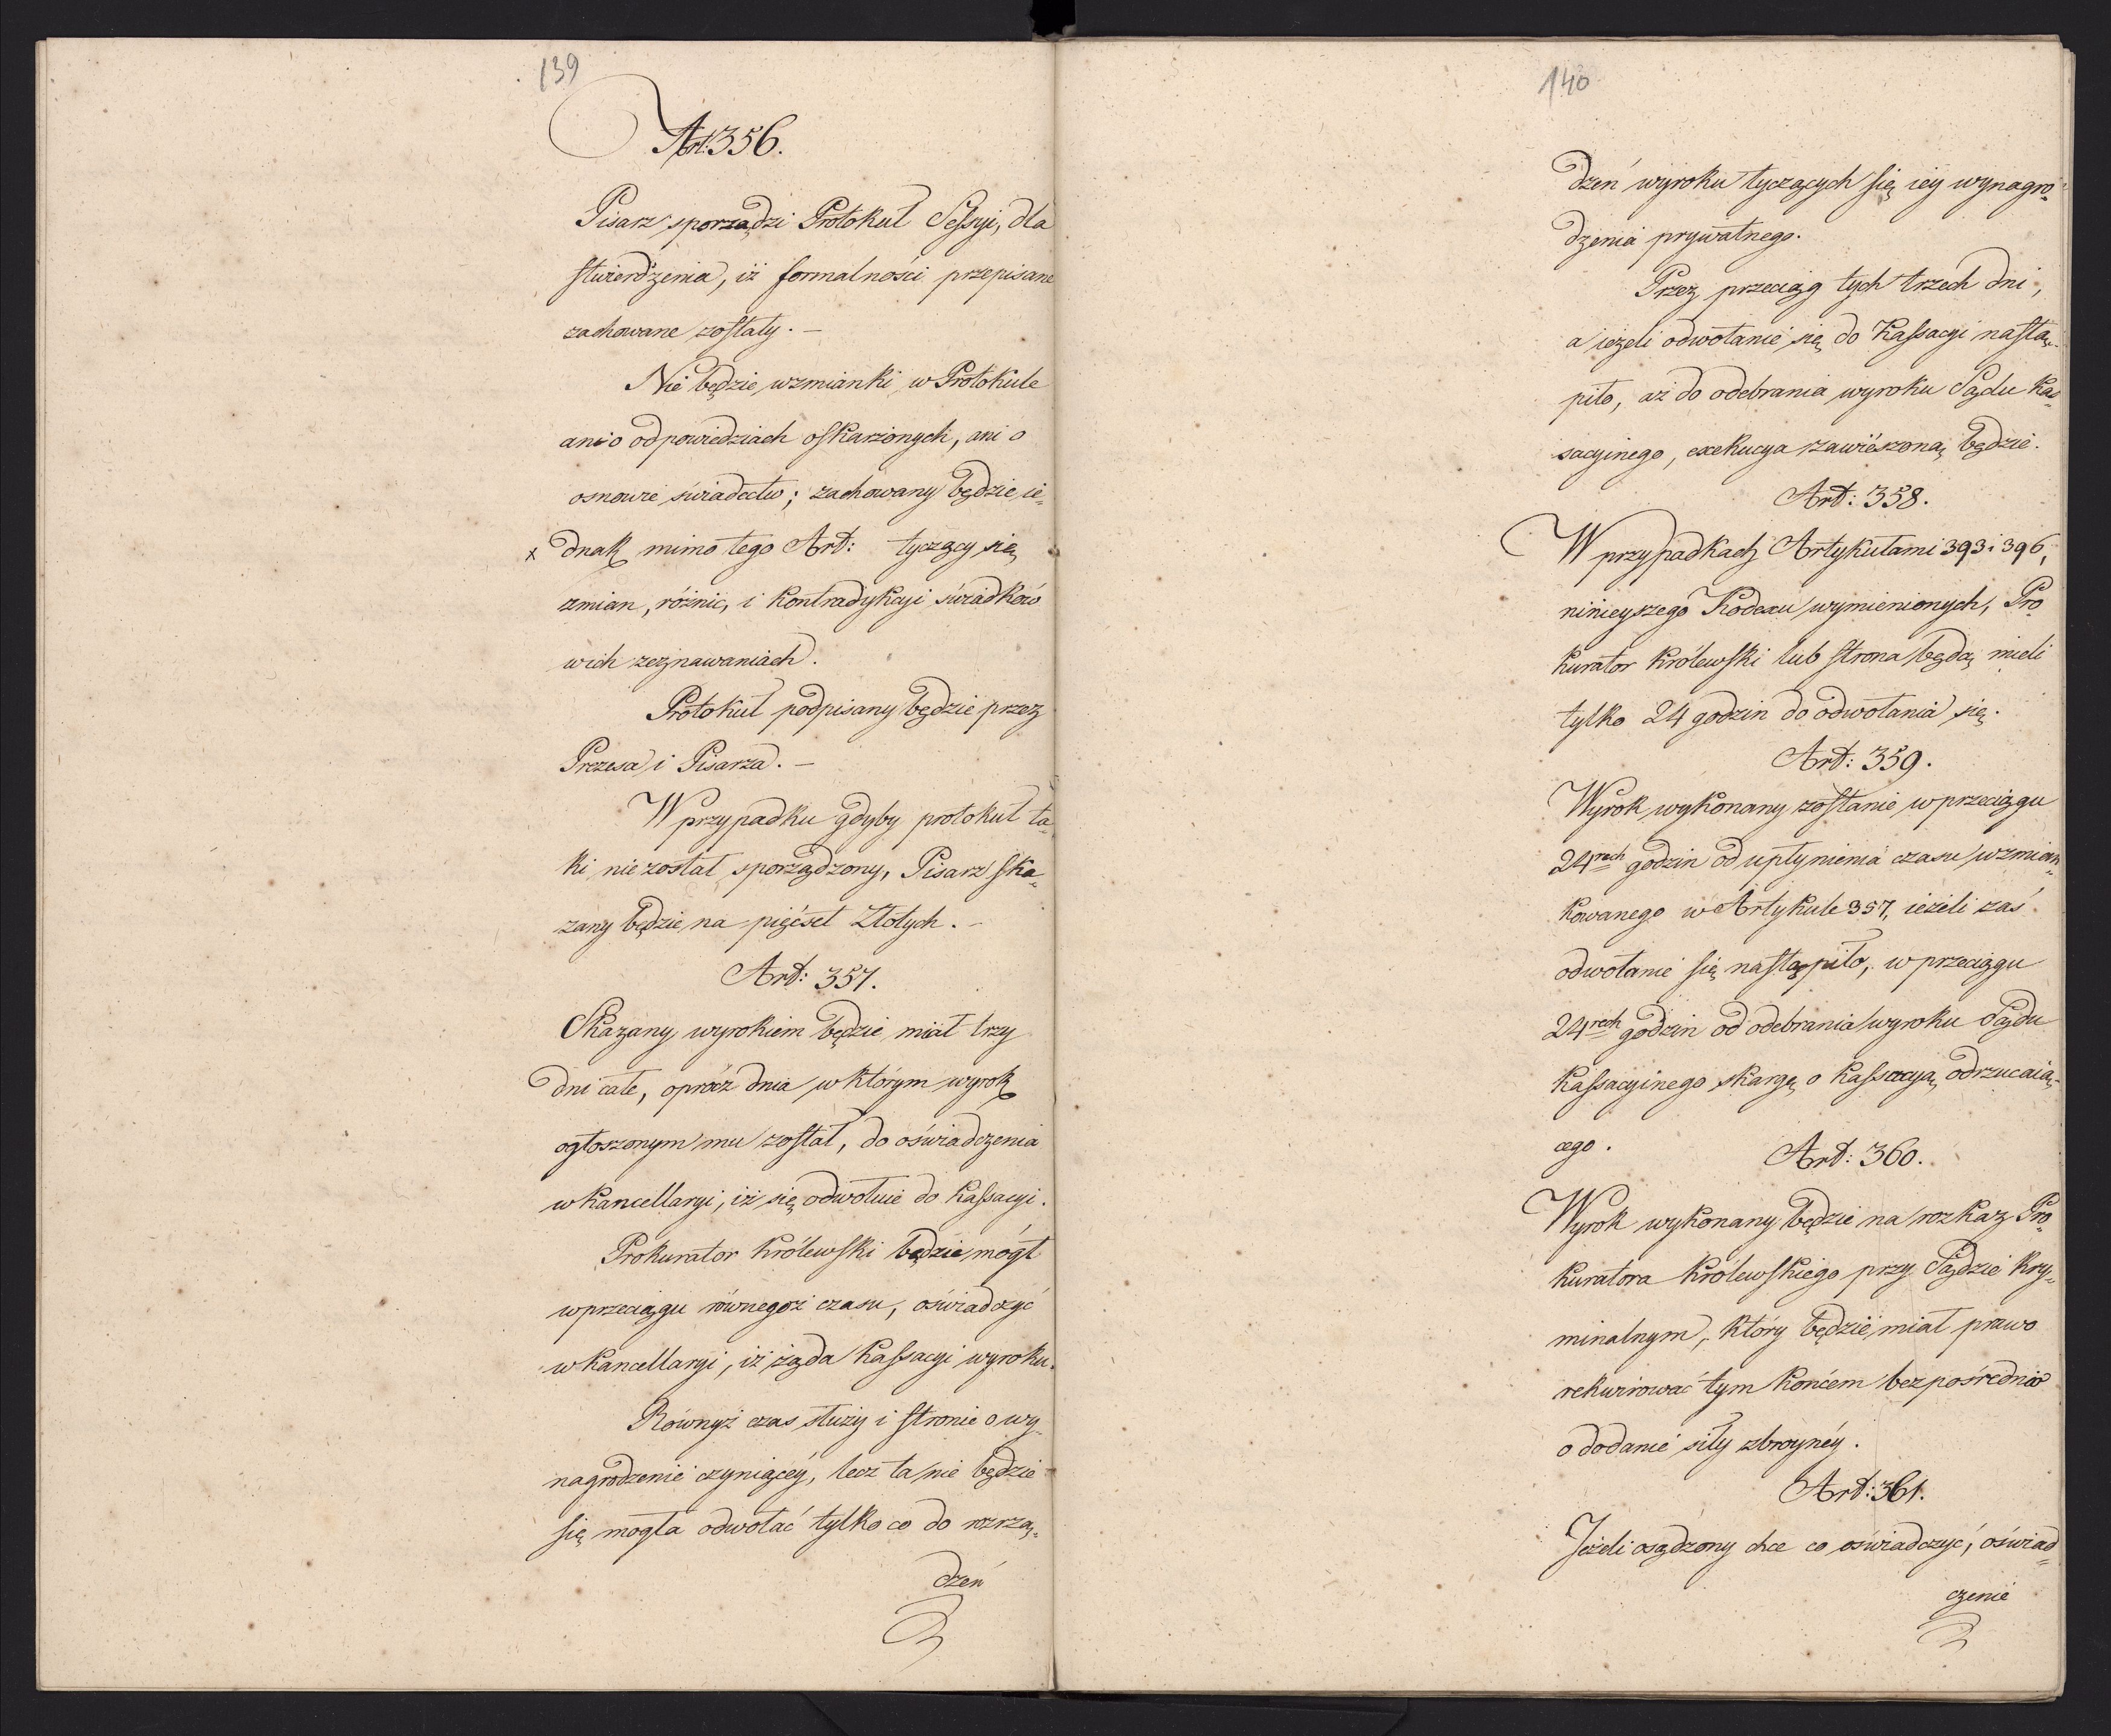 139
Art: 356.
Pisarz sporządzi Protokuł Sessyi, dla
stwierdzenia, iż formalności przepisane
zachowane zostały. –
Nie będzie wzmianki w Protokule
ani o odpowiedziach oskarżonych, ani o
osnowie świadectw; zachowany będzie ie„
x dnak mimo tego Art: tyczący się
zmian, różnic, i kontradykcyi świadków
w ich zeznawaniach.
Protokuł podpisany będzie przez
Prezesa i Pisarza. –
W przypadku gdyby protokuł ta„
ki nie został sporządzony, Pisarz ska„
zany będzie na pięćset Złotych. –
Art: 357.
Skazany wyrokiem będzie miał trzy
dni całe, oprócz dnia w którym wyrok
ogłoszonym mu został, do oświadczenia
w kancellaryi, iż się odwołuie do kassacyi.
Prokurator królewski będzie mógł
w przeciągu równegoż czasu, oświadczyć
w kancellaryi, iż żąda kassacyi wyroku.
Równyż czas służy i stronie o wy„
nagrodzenie czyniącéy, lecz ta nie będzie
się mogła odwołać tylko co do rozrzą„
dzeń
140
dzeń wyroku tyczących się iéy wynagro„
dzenia prywatnego.
Przez przeciąg tych trzech dni,
a ieżeli odwołanie się do Kassacyi nastą„
piło, aż do odebrania wyroku Sądu Kas„
sacyinego, exekucya zawieszoną będzie.
Art: 358.
W przypadkach Artykułami 393 i 396,
ninieyszego Kodexu wymienionych, Pro„
kurator królewski lub strona będą mieli
tylko 24 godzin do odwołania się.
Art: 359.
Wyrok wykonany zostanie w przeciągu
24rech godzin od upłynienia czasu wzmian„
kowanego w Artykule 357, ieżeli zaś
odwołanie się nastąpiło, w przeciągu
24rech godzin od odebrania wyroku Sądu
kassacyinego skargę o kassacyą odrzucaią„
cego.
Art: 360.
Wyrok wykonany będzie na rozkaz Pro„
kuratora królewskiego przy Sądzie Kry„
minalnym, który będzie miał prawo
rekwirować tym końcem bezpośrednio
o dodanie siły zbroynéy.
Art: 361.
Jeżeli osądzony chce co oświadczyć, oświad„
czenie